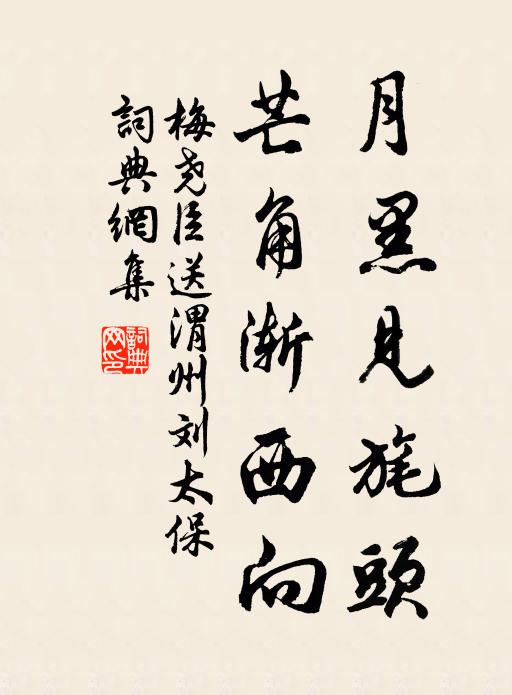 月黑見旄頭
芒角漸西向
梅尧臣送渭州刘太保
詞典網集
詞典网印